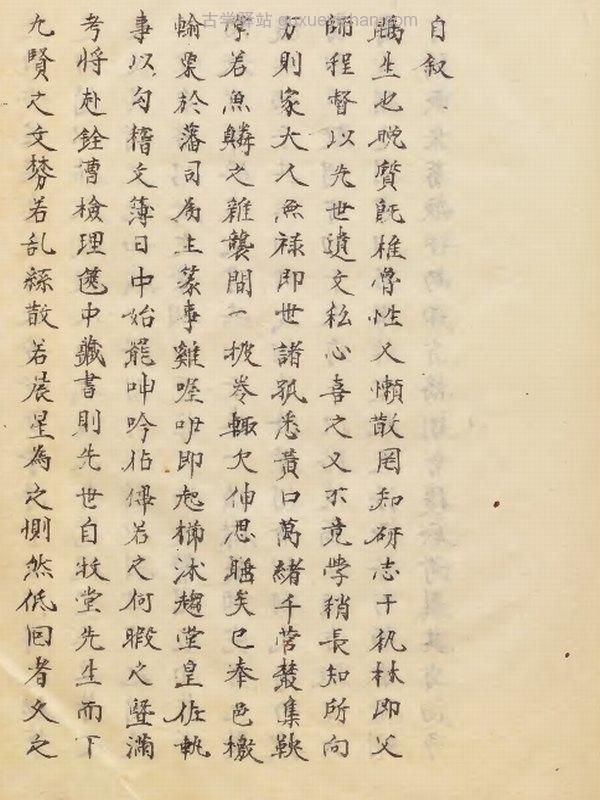 古学驿站 guxueyizhan.com
自叙
鴎生也晚質既椎魯性又懶散罔知研志于秇林即父
師程督以先世遺文私心喜之又不竟學稍長知所向
方則家大人無祿即世諸孤悉黃口萬緒千營叢集鞅
掌若魚鱗之雜襲間一披卷輒欠伸思睡矣已奉邑檄
輸粟於藩司為主篆事雞喔咿即起櫛沐趨堂皇佐執
事以勾稽文簿日中始罷呻吟佔俾若之何暇之暨滿
考將赴銓曹檢理篋中藏書則先世自牧堂先生而下
九賢之文棼若乱絲散若晨星為之惻然低回者久之